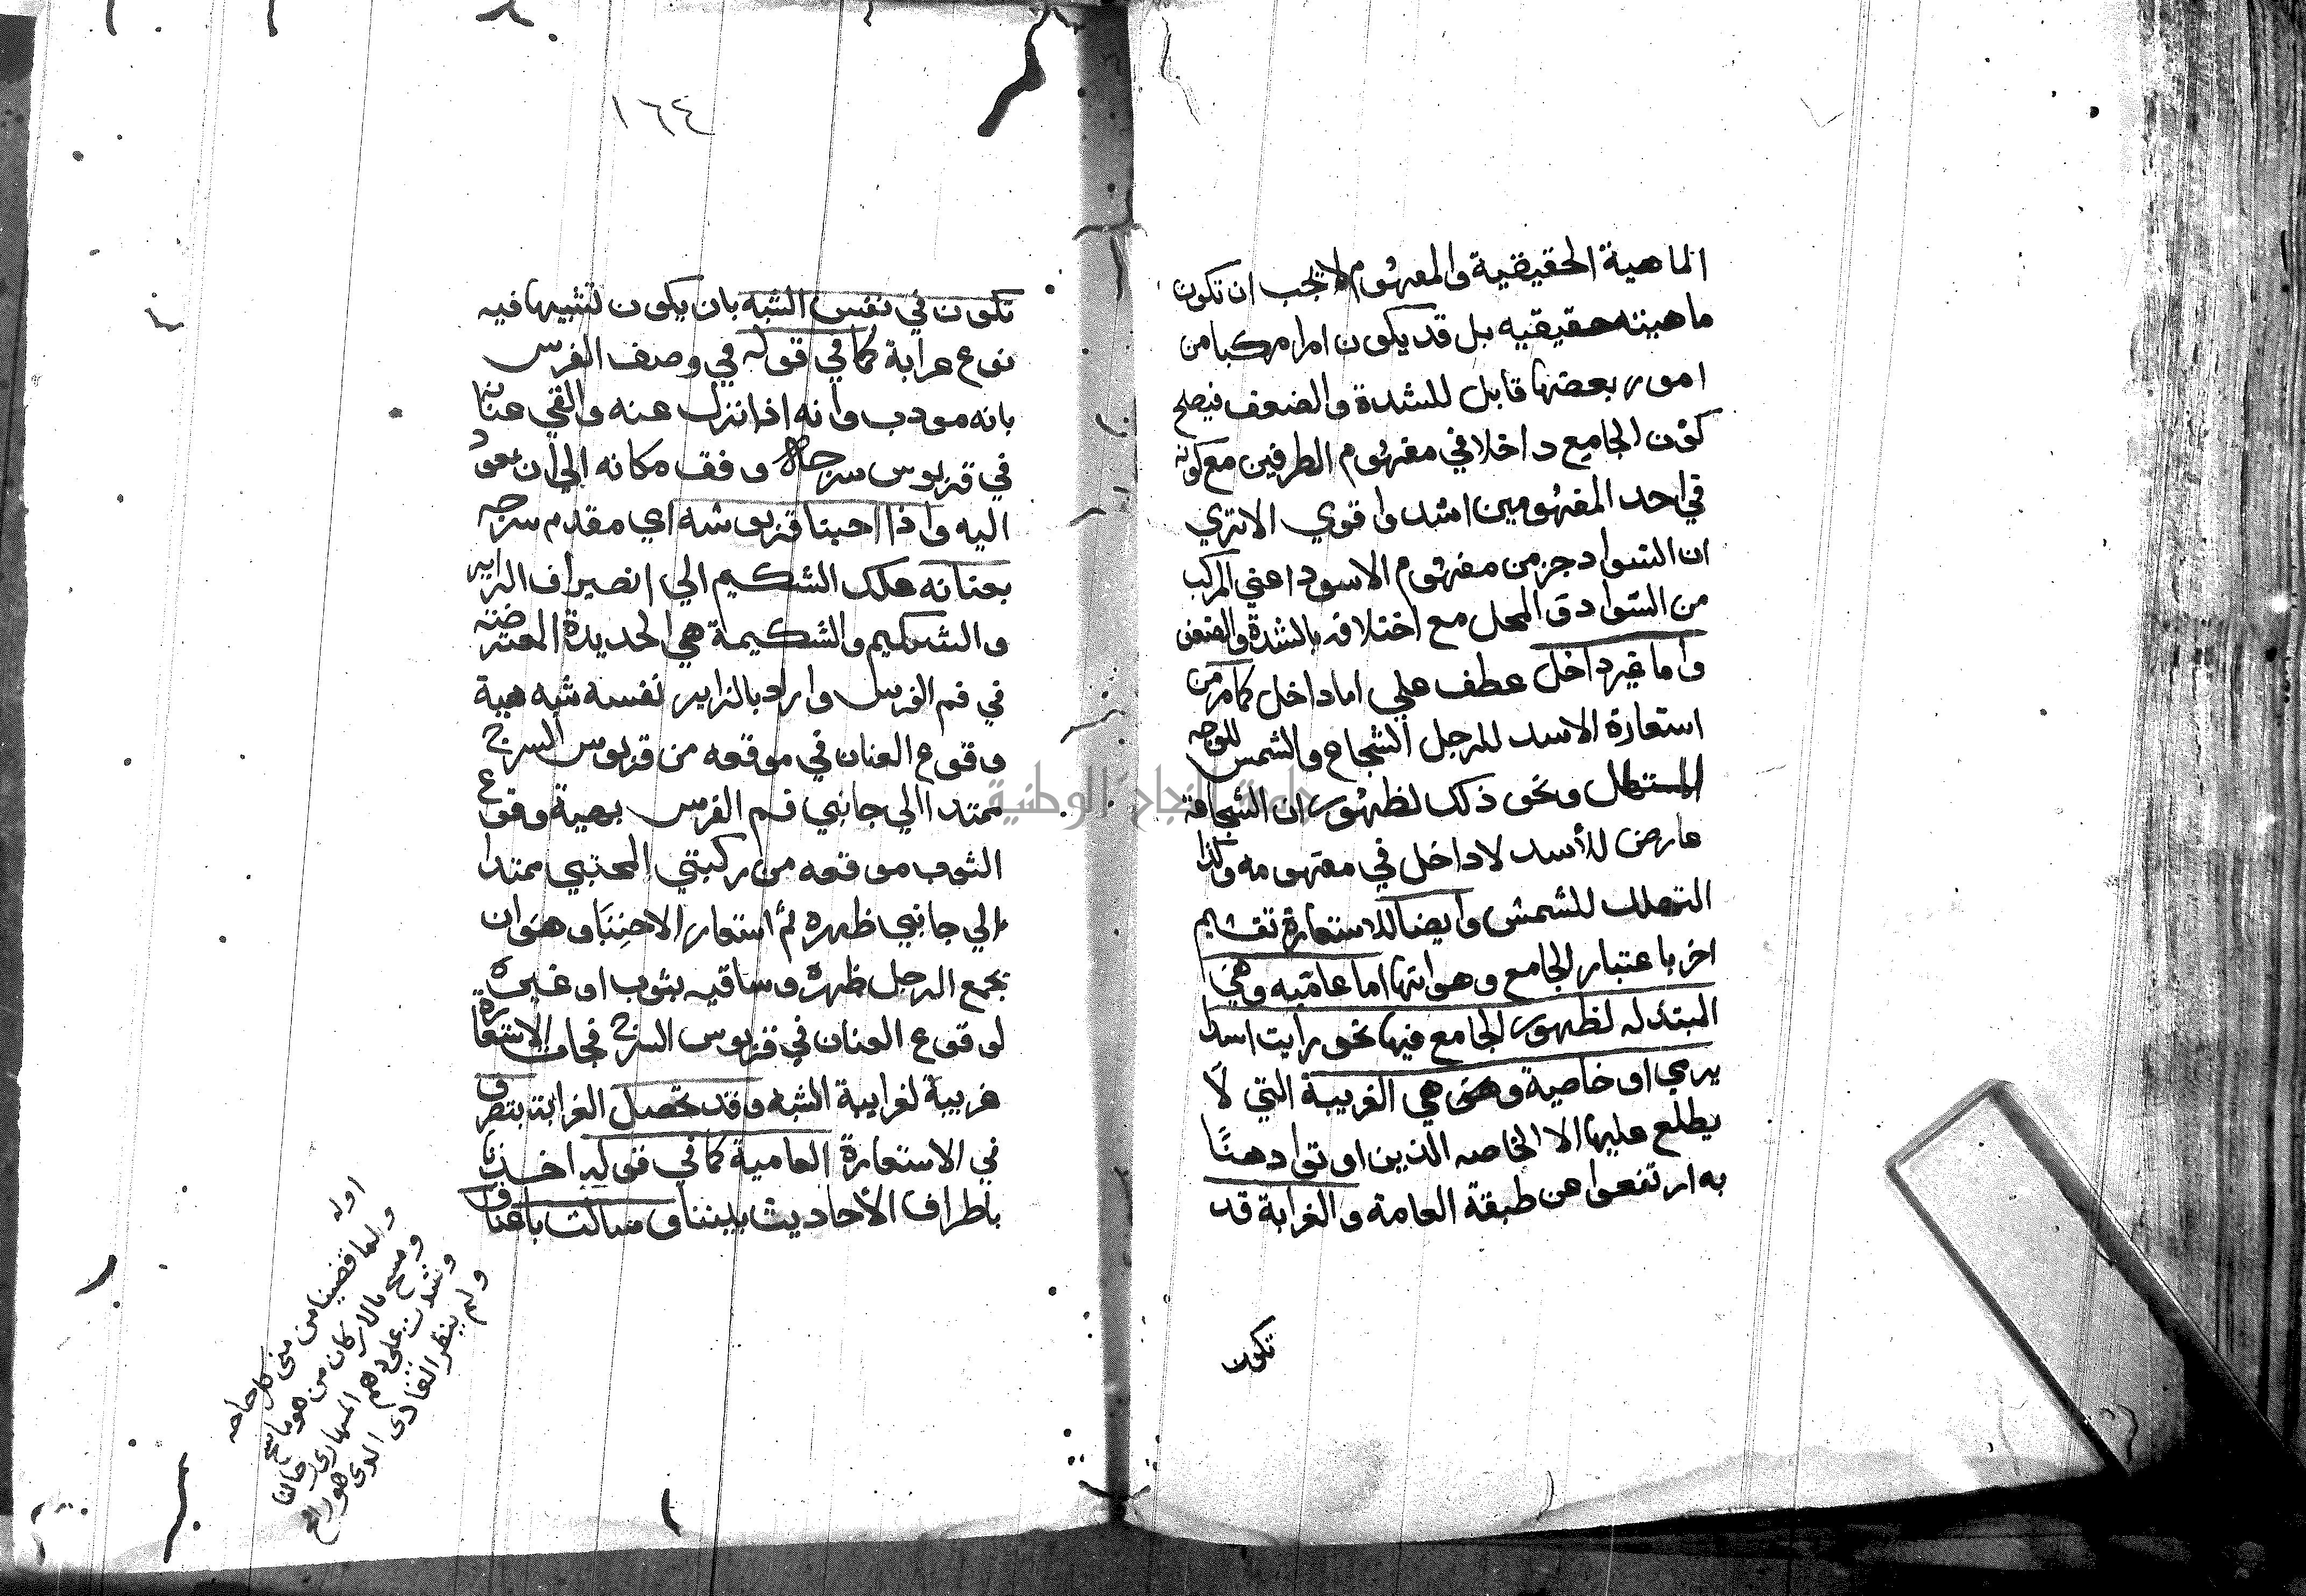 الماهية الحقيقية والمفهوم لا يجب ان تكون
ماهيته حقيقيه بل قد يكون امرا مركبا من
امور بعضها قابل للشدة والضعف فيصح
كون الجامع داخلا في مفهوم الطرفين مع كونه
في احد المفهومين اشد واقوي الا تري
ان السواد جز من مفهوم الاسود اعني المركب
من السواد و المحل مع اختلافه بالشدة والضعف
واما غير داخل عطف علي اما داخل كما مر من
استعارة الاسد للرجل الشجاع والشمس للوجه
المتهلل ونحو ذلك لظهور ان الشجاعة
عارض للأسد لا داخل في مفهومه وكذا
التهلل للشمس وايضا للاستعارة تقسيم
اخر باعتبار الجامع وهو انها اما عاميه وهي
المبتذله لظهور الجامع فيها نحو رايت اسدا
يرمي او خاصية وهي الغريبة التي لا
يطلع عليها الا الخاصه الذين اوتوا ذهنًا
به ارتفعوا عن طبقة العامة والغرابة قد
تكون
١٦٤
تكون في نفس الشبه بان يكون تشبيها فيه
نوع غرابة كما في قوله في وصف الفرس
بانه مودب وانه اذا نزل عنه والقي عنانه
في قربوس سرجه وقف مكانه الي ان يعود
اليه واذا احتبا قربوسه اي مقدم سرجه
بعنانه علك الشكيم الي انصراف الزاير
والشكيم والشكيمة هي الحديدة المعترضة
في فم الفرس واراد بالزاير نفسه شبه هية
وقوع العنان في موقعه من قربوس السرج
ممتدا الي جانبي فم الفرس بهية وقوع
الثوب موقعه من ركبتي المحتبي ممتدا
الي جانبي ظهره ثم استعار الاحتبا وهو ان
يجمع الرجل ظهره وساقيه بثوب او غيره
لوقوع العنان في قربوس السرج فجات الاستعارة
غريبة لغرابة الشبه وقد تحصل الغرابة بتصرف
في الاستعارة العامية كما في قوله اخذنا
باطراف الأحاديث بيننا و سالت باعناق
اوله
ولما قضينا من منى كل حاجه
ومسح بالاركان من هو ماسح
وشدت على دهم المهارى رحالنا
ولم ينظر الغادى الذى هو رائح
جامعة النجاح الوطنية